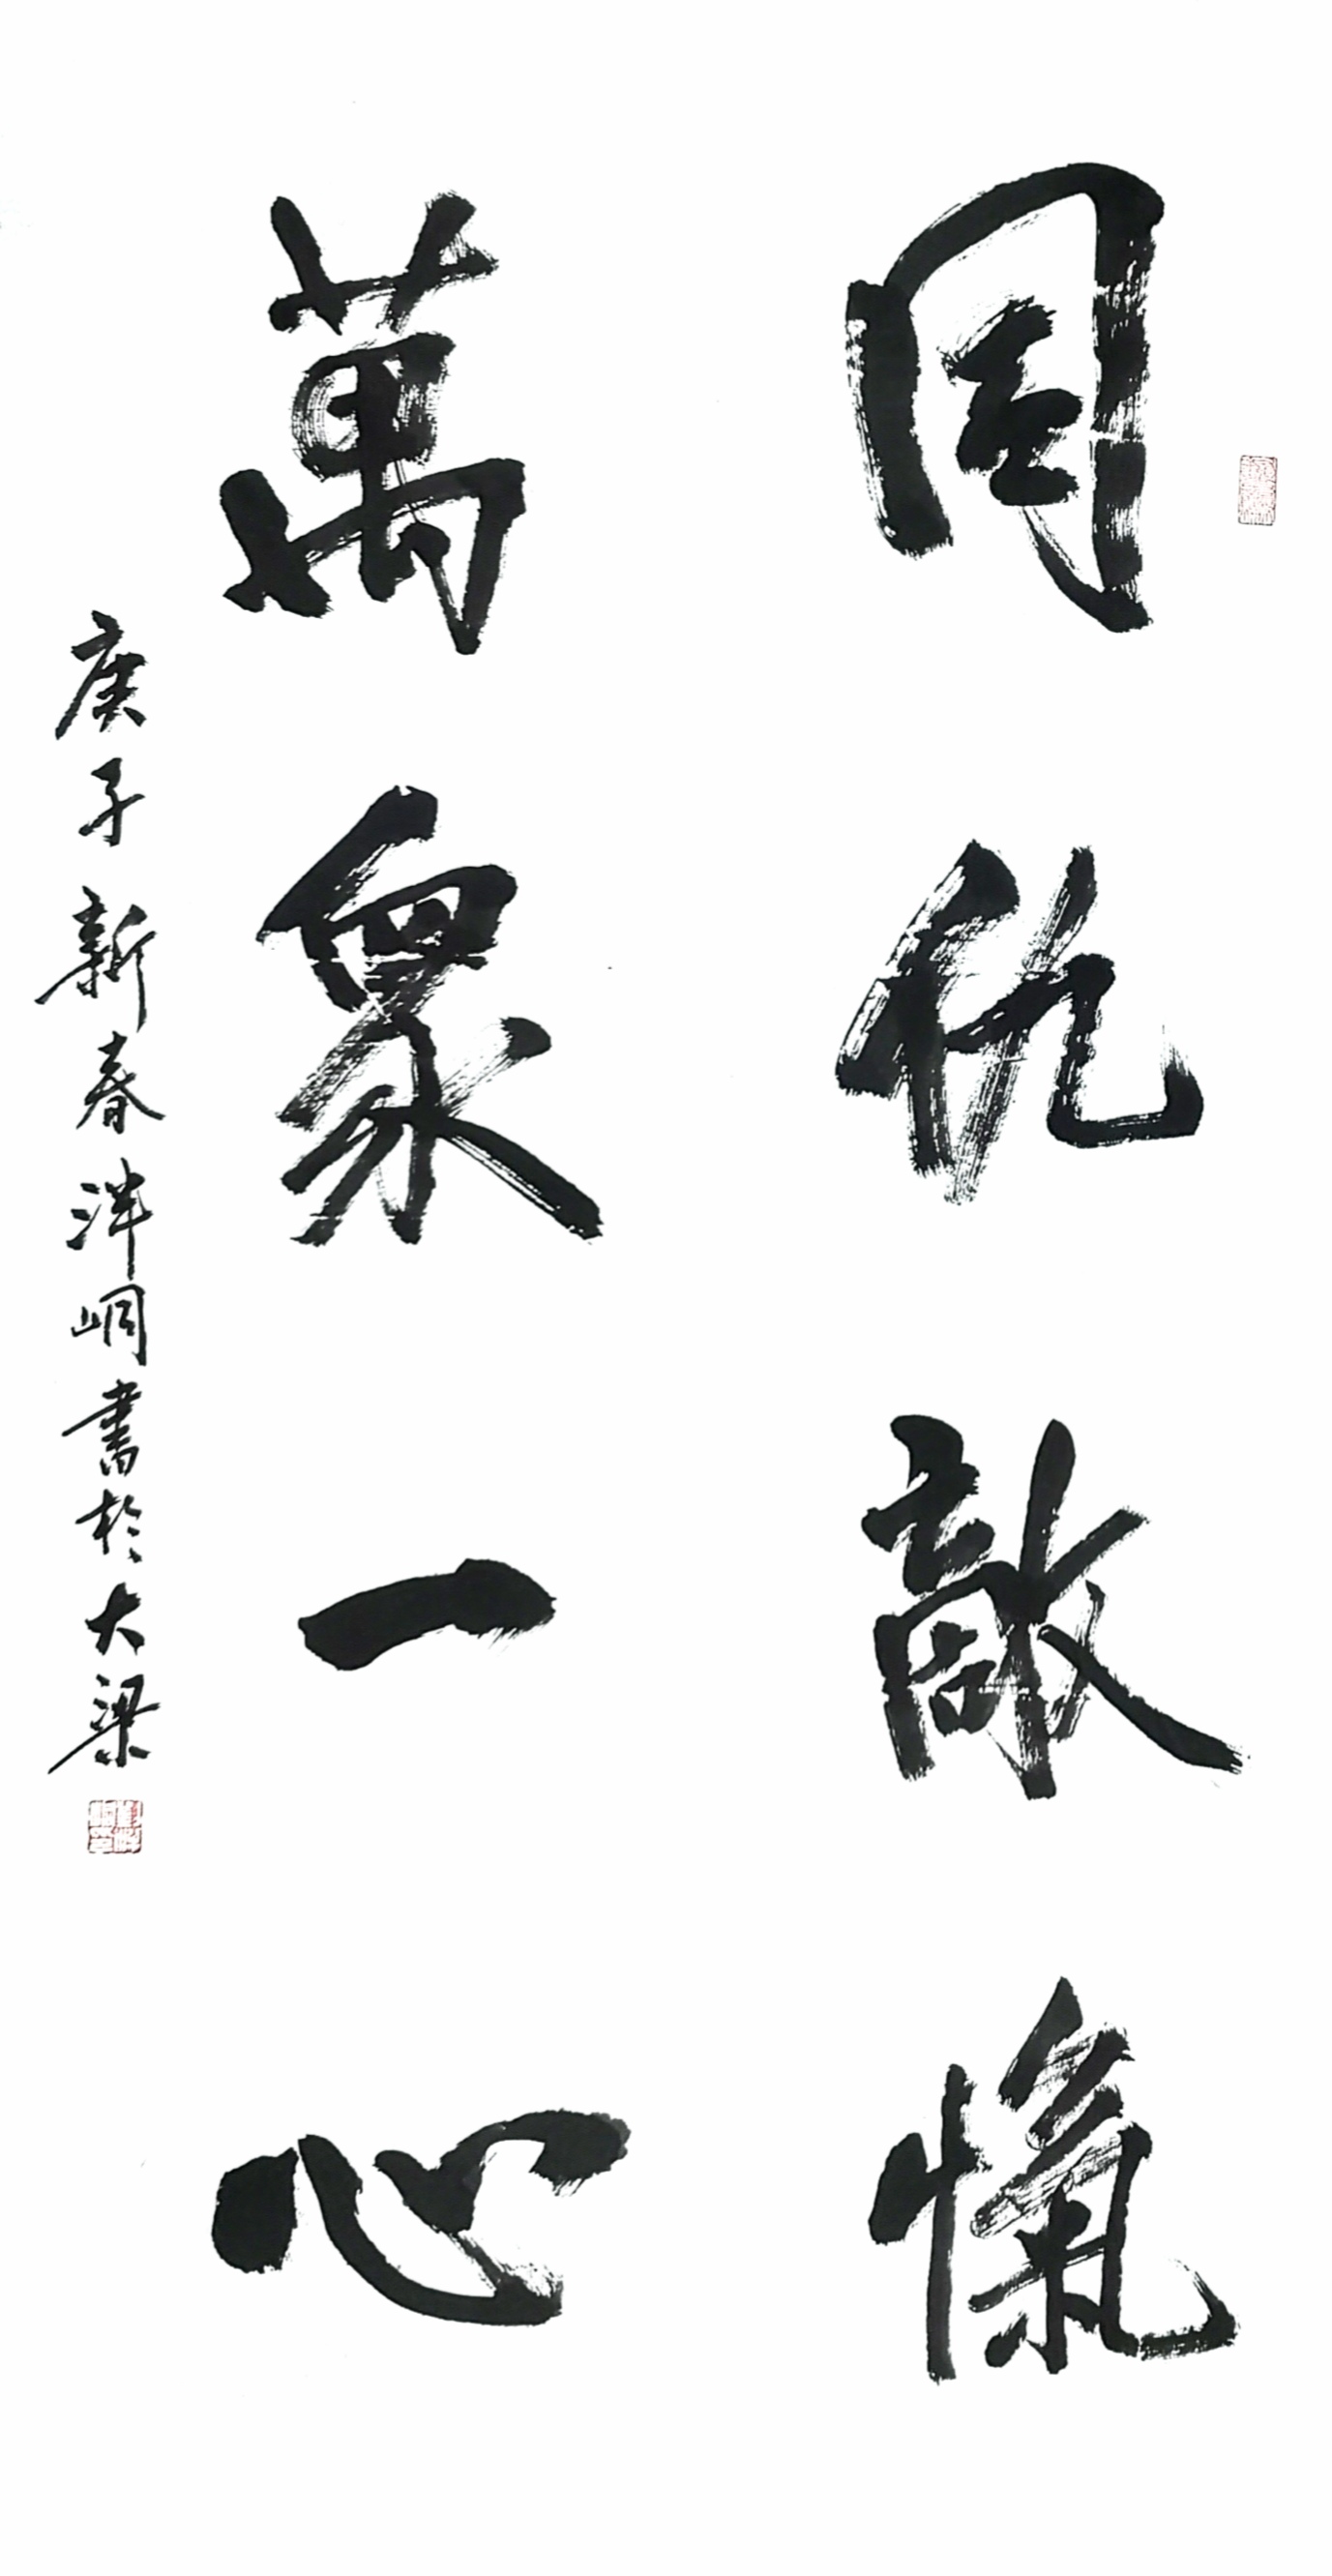 同仇敵愾
萬衆一心
庚子新春泮峒書於大梁